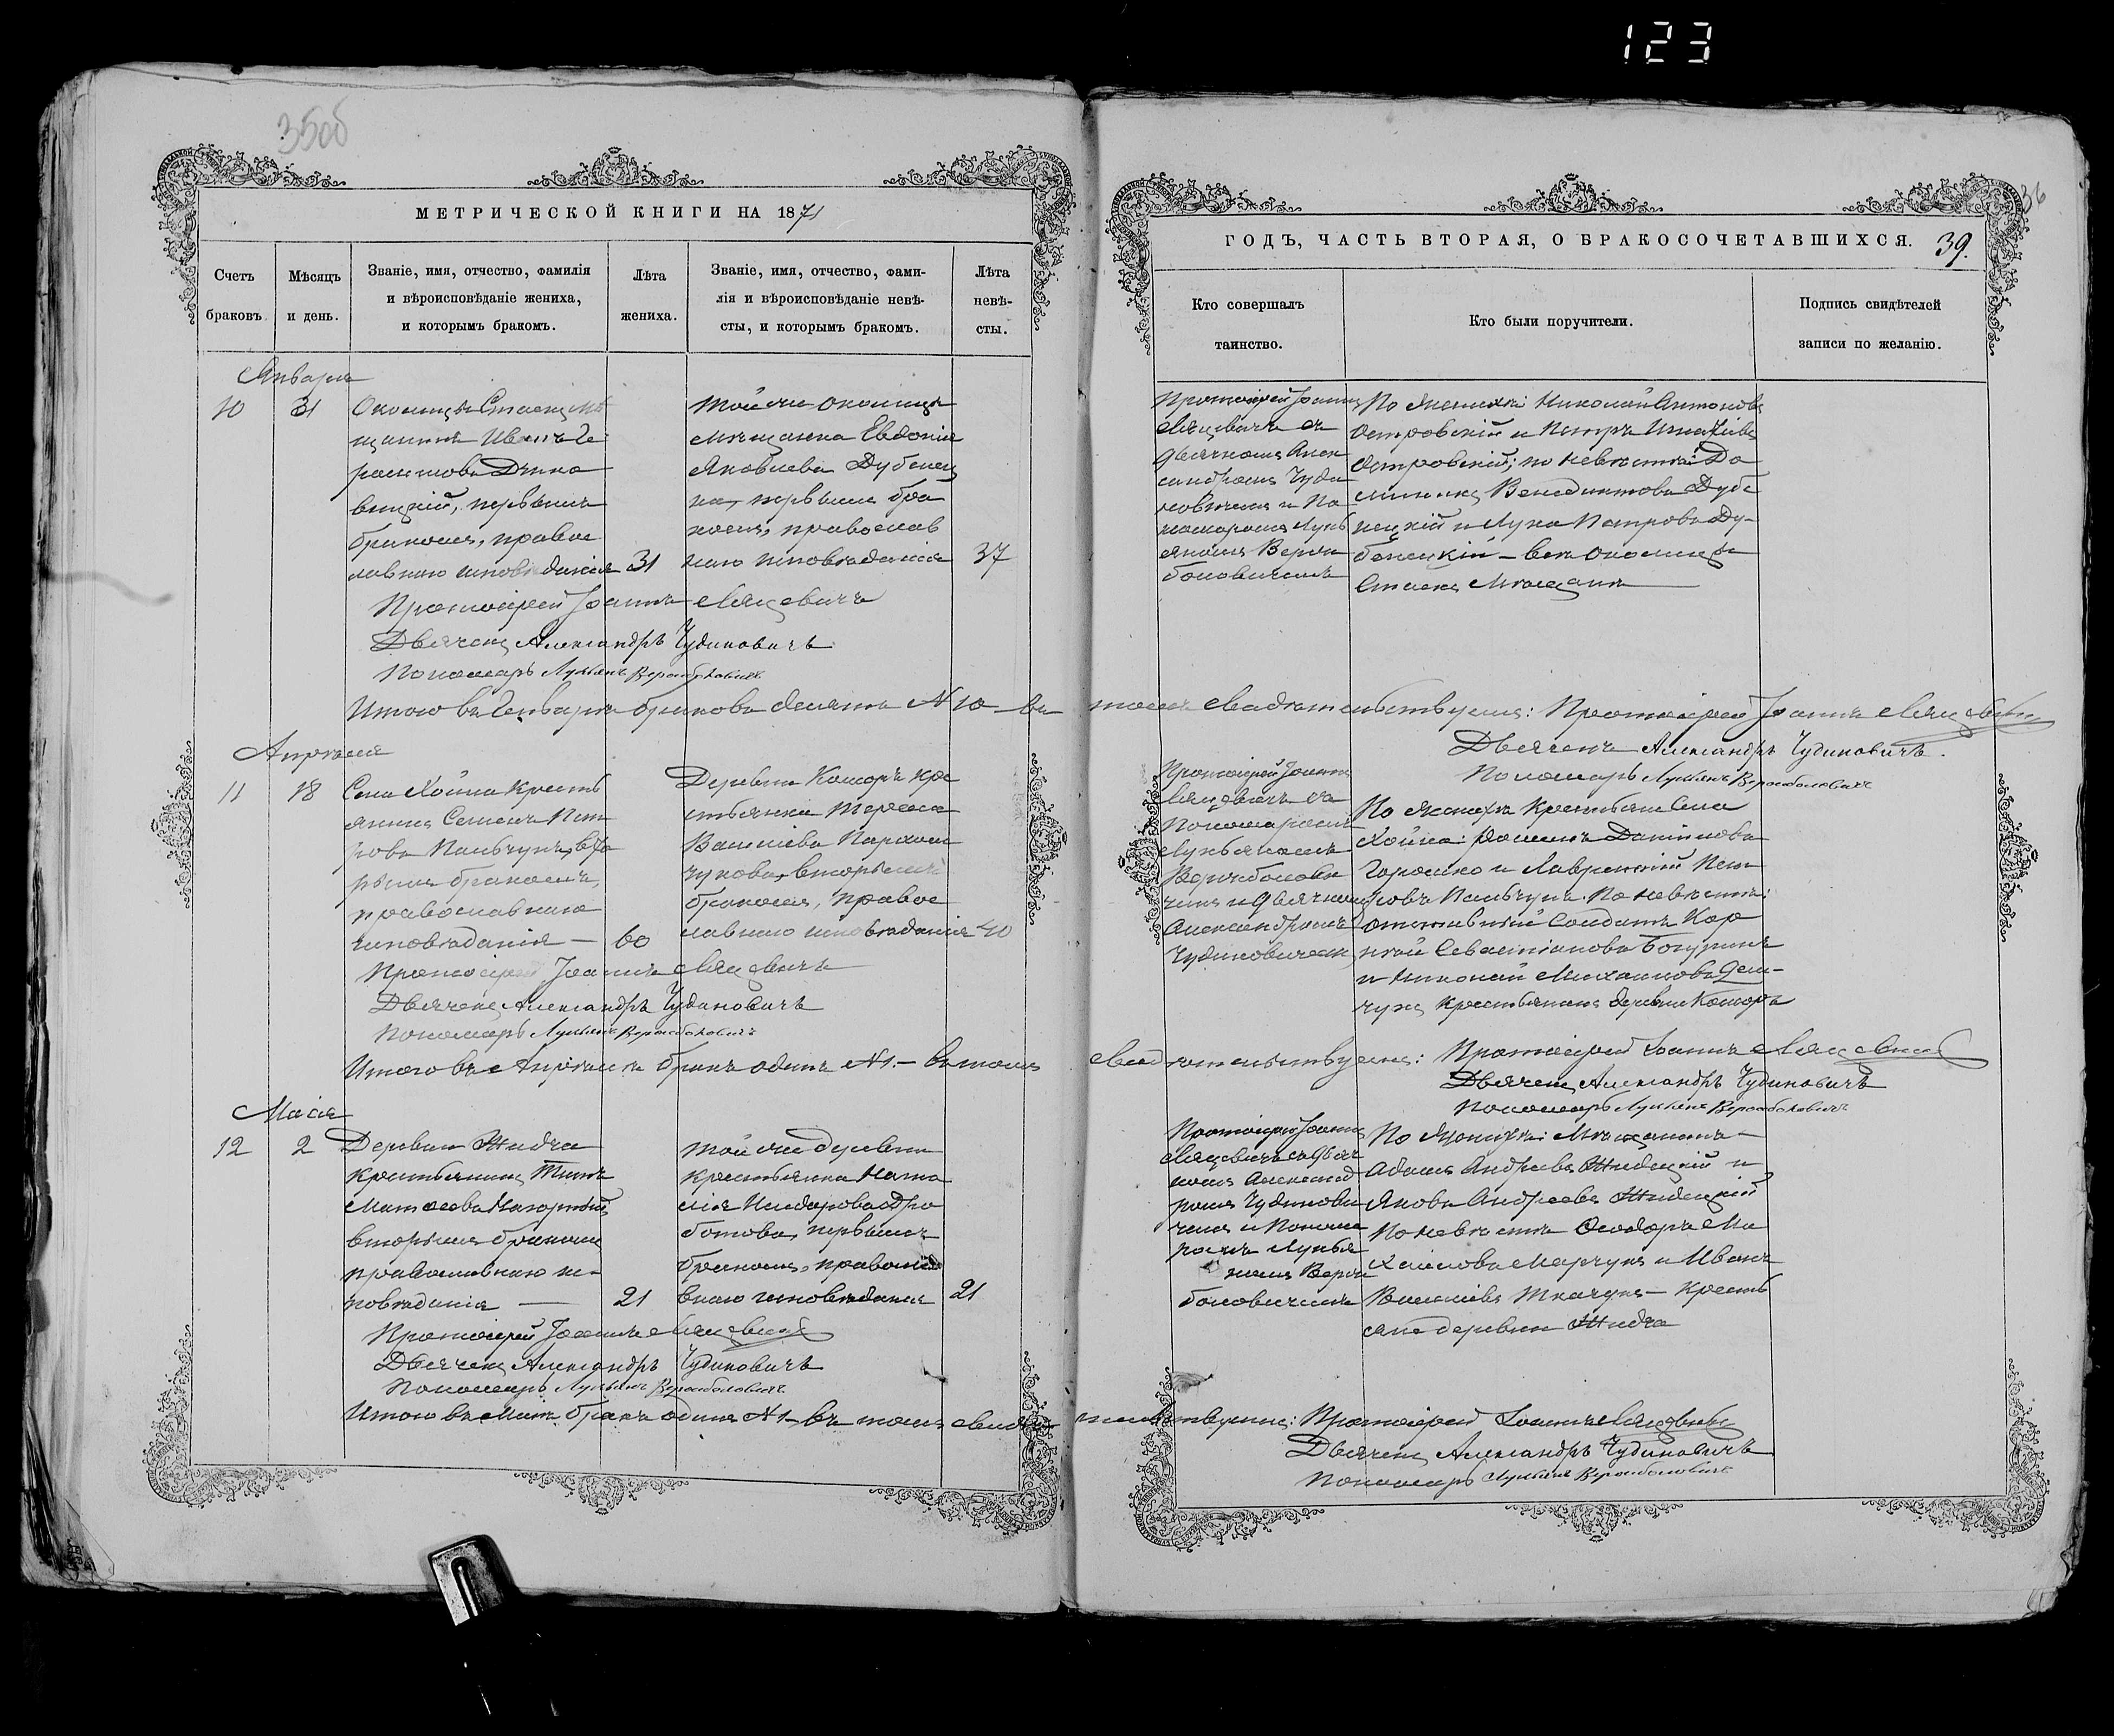 123
35об
МЕТРИЧЕСКОЙ КНИГИ НА 1871
Счетъ браковъ.
Мѣсяцъ и день.
Званіе, имя, отчество, фамилія
и вѣроисповѣданіе жениха,
и которымъ бракомъ.
Лѣта
жениха.
Званіе, имя, отчество, фами-
лія и вѣроисповѣданіе невѣ-
сты, и которымъ бракомъ.
Лѣта
невѣ-
сты.
Января
10
31
Околицы Стаецъ мѣ
щанинъ Иванъ Ге
расимовъ
вицкій, первымъ
бракомъ, правос
лавнаго исповѣданія
31
той же околицы
мѣщанка Евдокія
Яковлева Дубенец
ка, первымъ бра
комъ, православ
наго исповѣданія
37
Протоіерей Іоаннъ Ляцевичъ
Дьячекъ Александръ Чудиновичъ
Пономарь Лукьянъ
Итого въ Генварѣ браковъ десять N 10 въ
Апрѣля
11
18
Села Хойна кресть
янинъ Семенъ Пет
ровъ Пальчукъ, вто
рымъ бракомъ,
православнаго
исповѣданія —
60
Деревни Кошоръ кре
стьянка
Васильева Пархом
чукова, вторымъ
бракомъ, правос
лавнаго исповѣданія
40
Протоіерей Іоаннъ Ляцевичъ
Дьячекъ Александръ Чудиновичъ
Пономарь Лукьянъ
Итого въ Апрѣлѣ бракъ одинъ N 1. — въ томъ
Маія
12
2
Деревни Жидча
крестьянинъ Титъ
вторымъ бракомъ
православнаго ис
повѣданія —
21
той же деревни
крестьянка Ната
лія
ботова, первымъ
бракомъ, правосла
внаго исповѣданія
21
Протоіерей Іоаннъ Ляцевичъ
Дьячекъ Александръ Чудиновичъ
Пономарь Лукьянъ
Итого въ Маіѣ бракъ одинъ N 1 — въ томъ свидѣ
36
ГОДЪ, ЧАСТЬ ВТОРАЯ, О БРАКОСОЧЕТАВШИХСЯ.
39.
Кто совершалъ
таинство.
Кто были поручители.
Подпись свидѣтелей
записи по желанію.
Протоіерей Іоаннъ
Ляцевичъ съ
дьячкомъ Алек
сандромъ Чуди
новичемъ и По
номаремъ Лукь
яномъ
По женихѣ Николай Антоновъ
Островскій и Петръ Игнатіевъ
Островскій; по невѣстѣ До
миникъ Венедиктовъ Дубе
нецкій и Лука Петровъ Ду-
бенецкій — всѣ околицы
Стаекъ мѣщане
томъ свидѣтельствуемъ: Протоіерей Іоаннъ Ляцевичъ
Дьячекъ Александръ Чудиновичъ.
Пономарь Лукьянъ
Протоіерей Іоаннъ
Ляцевичъ съ
Пономаремъ
Лукьяномъ
чемъ и дьячкомъ
Александромъ
Чудиновичемъ
По женихѣ крестьяне села
Хойна: Романъ Даниловъ
Горошко и Лаврентій Пет
ровъ Пальчукъ. По невѣстѣ:
отставный солдатъ Кор
нилій Севастіановъ
и Николай Михаиловъ Дем-
чукъ крестьянинъ деревни Кошоръ
свидѣтельствуемъ: Протоіерей Іоаннъ Ляцевичъ
Дьячекъ Александръ Чудиновичъ
Пономарь Лукьянъ
Протоіерей Іоаннъ
Ляцевичъ съ дьяч
комъ Александ
ромъ Чудинови
чемъ и Понома
ремъ Лукья
номъ
По женихѣ: мѣщанинъ —
Адамъ Андреевъ Жидецкій и
Яковъ Андреевъ Жидецкій
По невѣстѣ Ѳеодоръ Ми
хаиловъ Марчукъ и Иванъ
Васильевъ Ткачукъ — кресть
яне деревни Жидча
тельствуемъ: Протоіерей Іоаннъ Ляцевичъ
Дьячекъ Александръ Чудиновичъ
Пономарь Лукьянъ